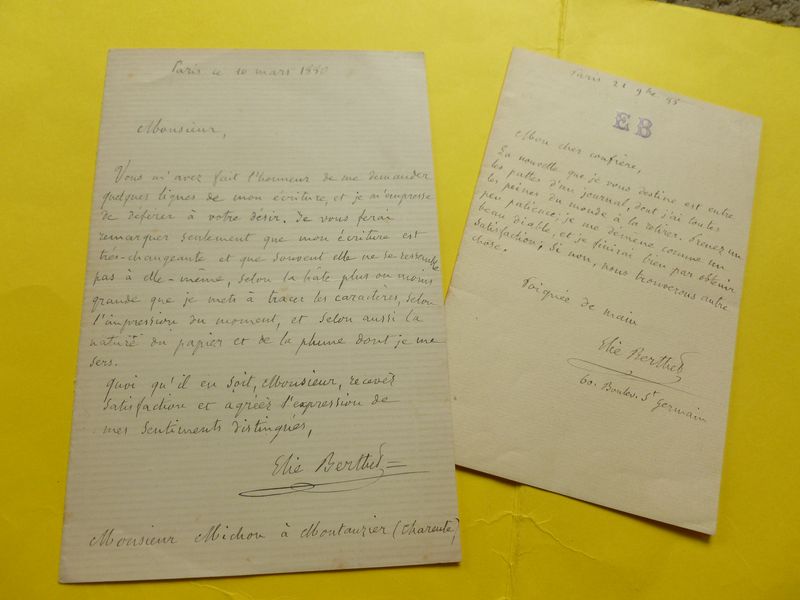 Paris ce 10 mars 1880
Monsieur,
Vous m'avez fait l'honneur de me demander
quelques lignes de mon écriture, et je m'empresse
de déférer à votre désir. Je vous ferai
remarquer seulement que mon écriture est
très-changeante et que souvent elle ne se ressemble
pas à elle-même, selon la hâte plus ou moins
grande que je mets à tracer les caractères, selon
l'impression du moment, et selon aussi la
nature du papier et de la plume dont je me
sers.
Quoi qu'il en soit, Monsieur, recevez
satisfaction et agréez l'expression de
mes sentiments distingués,
Elie Berthet
Monsieur Michon à Montausier (Charente)
Paris 21 9bre 55
EB
Mon cher confrère,
La nouvelle que je vous destine est entre
les pattes d'un journal, dont j'ai toutes
les peines du monde à la retirer. Prenez un
peu patience; je me démène comme un
beau diable, et je finirai bien par obtenir
satisfaction; si non, nous trouverons autre
chose.
Poignée de main
Elie Berthet
60. Boulev. St Germain